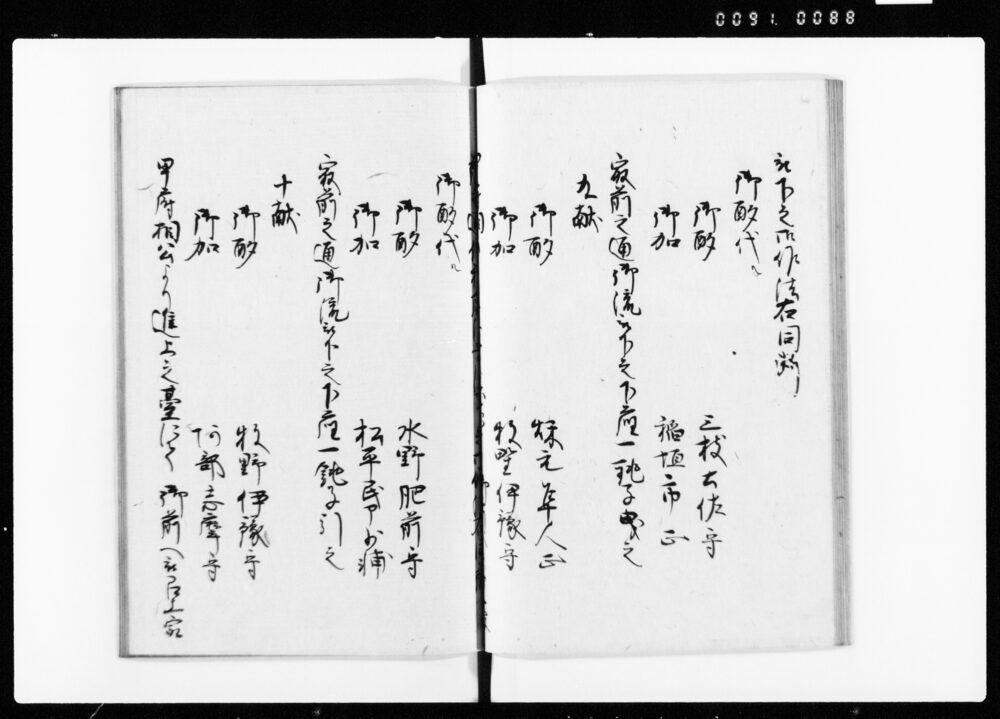 0091.0088
被下之御作法右同断
御酌代々
御酌 三枝土佐守
御加 稲垣市正
最前之通御流被下之下座一銚子曳之
九献
御酌 秋元隼人正
御加 牧野伊豫守
御酌代々
御酌 水野肥前守
御加 松平民部少輔
最前之通御流被下之下座一銚子引之
十献
御酌 牧野伊豫守
御加 阿部志摩守
甲府相公より進上之臺にて御前へ被召上